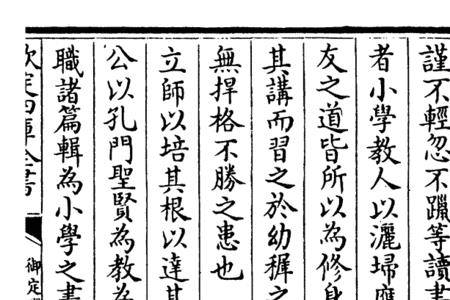 謹不輕忽不躐等讀書
者小學教人以灑埽應
友之道皆所以為修身
其講而習之於幼穉之
無捍格不勝之患也
立師以培其根以達其
公以孔門聖賢為教為
職諸篇輯為小學之書
欽定四庫全書 御定